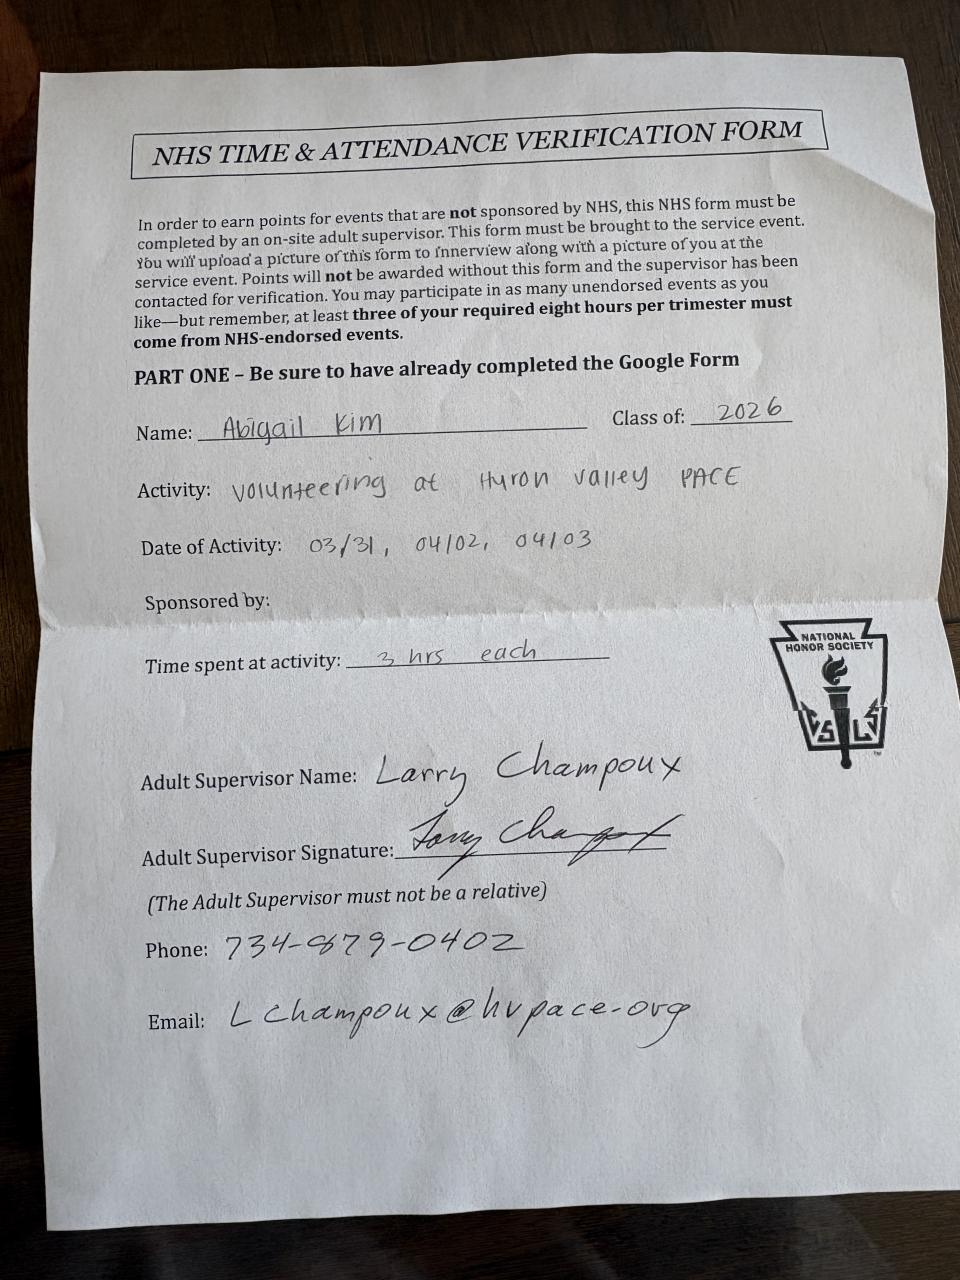 NHS TIME & ATTENDANCE VERIFICATION FORM
In order to earn points for events that are not sponsored by NHS, this NHS form must be
completed by an on-site adult supervisor. This form must be brought to the service event.
You will upload a picture of this form to Innerview along with a picture of you at the
service event. Points will not be awarded without this form and the supervisor has been
contacted for verification. You may participate in as many unendorsed events as you
like—but remember, at least three of your required eight hours per trimester must
come from NHS-endorsed events.
PART ONE – Be sure to have already completed the Google Form
Name: Abigail Kim Class of: 2026
Activity: Volunteering at Huron Valley PACE
Date of Activity: 03/31, 04/02, 04/03
Sponsored by:
NATIONAL
HONOR SOCIETY
Time spent at activity: 3 hrs each
C S L S
TM
Adult Supervisor Name: Larry Champoux
Adult Supervisor Signature: Larry Champoux
(The Adult Supervisor must not be a relative)
Phone: 734-879-0402
Email: Lchampoux@hvpace.org